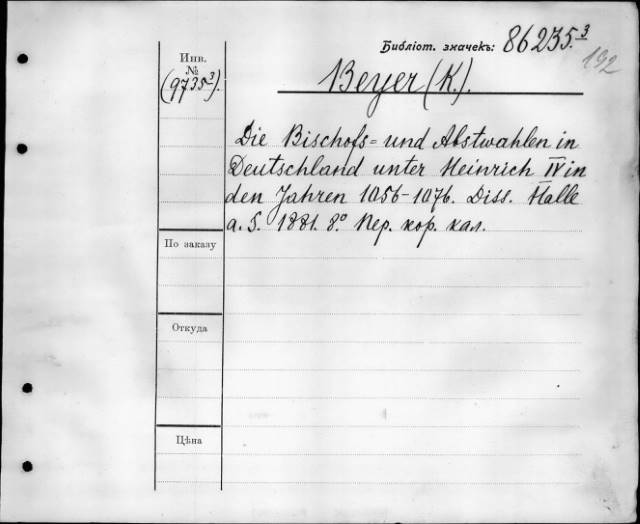 Библіот. значекъ: 86235.³
192
Инв.
№
(9735³).
Beyer (K.).
Die Bischofs= und Abstwahlen in
Deutschland unter Heinrich IV in
den Jahren 1056-1076. Diss. Halle
a. S. 1881. 8.° Пер. кор. кал.
По заказу
Откуда
Цѣна